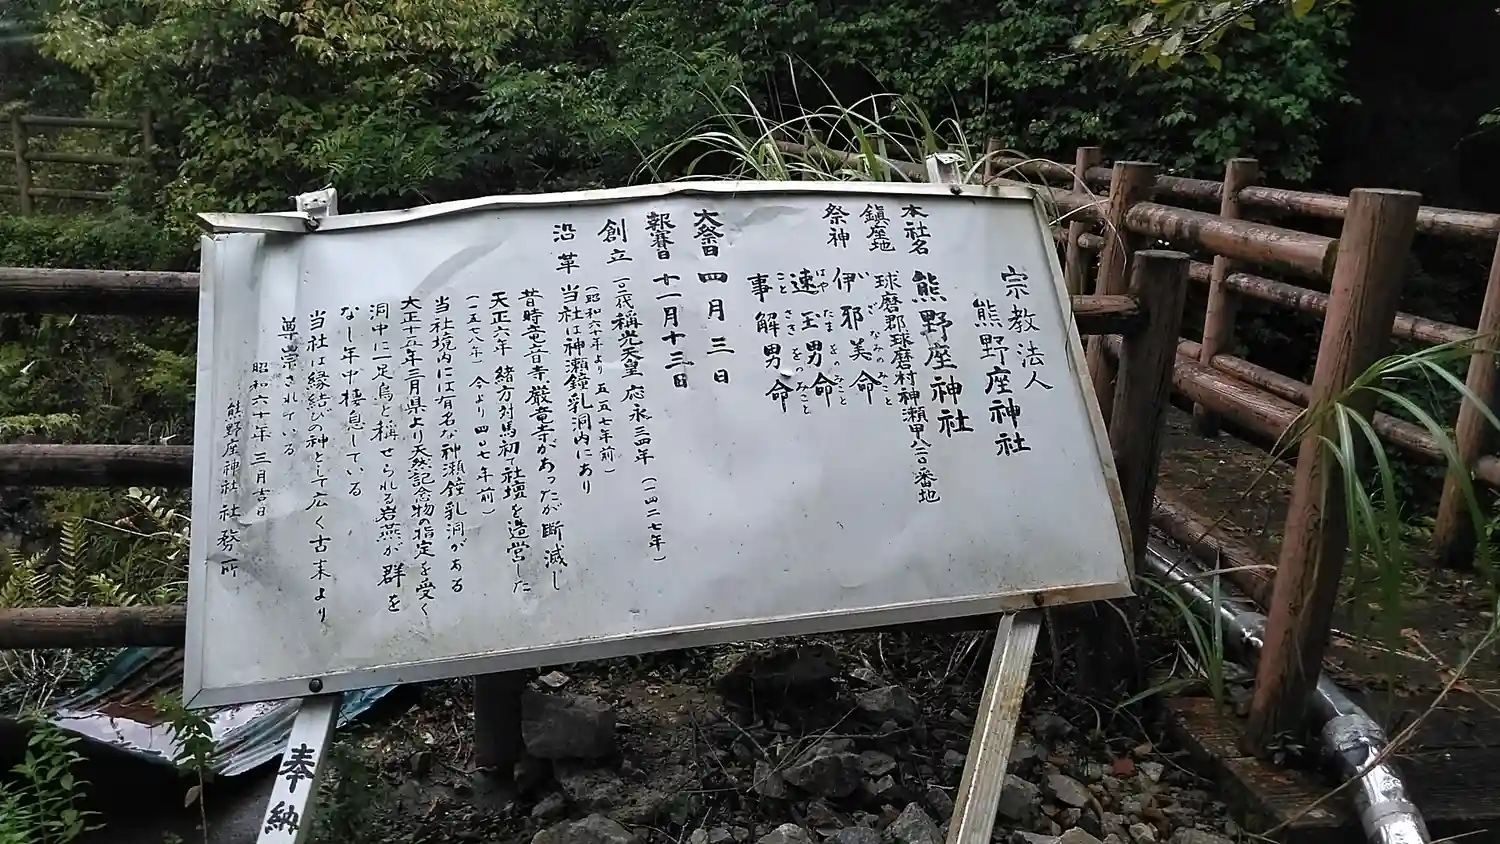 宗教法人
熊野座神社
本社名 熊野座神社
鎮座地 球磨郡球磨村神瀬甲八二〇番地
祭神 伊邪美命
いざなみのみこと
速玉男命
はやたまをのみこと
事解男命
ことさきをのみこと
大祭日 四月三日
報賽日 十一月十三日
創立 一〇一代称光天皇 応永三四年(一四二七年)
(昭和六十年より 五五七年前)
沿革 当社は神瀬鐘乳洞内にあり
昔時竜音寺 巌竜寺があったが断滅し
天正六年 緒方対馬初て社壇を造営した
(一五七八年 今より四〇七年前)
当社境内には有名な神瀬鐘乳洞がある
大正十五年三月県より天然記念物の指定を受く
洞中に一足鳥と称せられる岩燕が群を
なし年中棲息している
当社は縁結びの神として広く古来より
尊崇されている
昭和六十年 三月吉日
熊野座神社 社務所
奉納